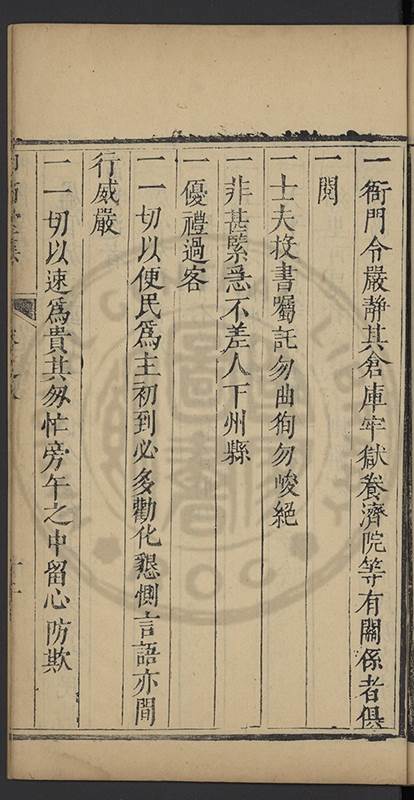 一衙門令嚴靜其倉庫牢獄養濟院等有關係者俱
一閱
一士夫投書囑託勿曲徇勿峻絕
一非甚緊急不差人下州縣
一優禮過客
一一切以便民爲主初到必多勸化懇惻言語亦間
行威嚴
一一切以速爲貴其匆忙旁午之中留心防欺